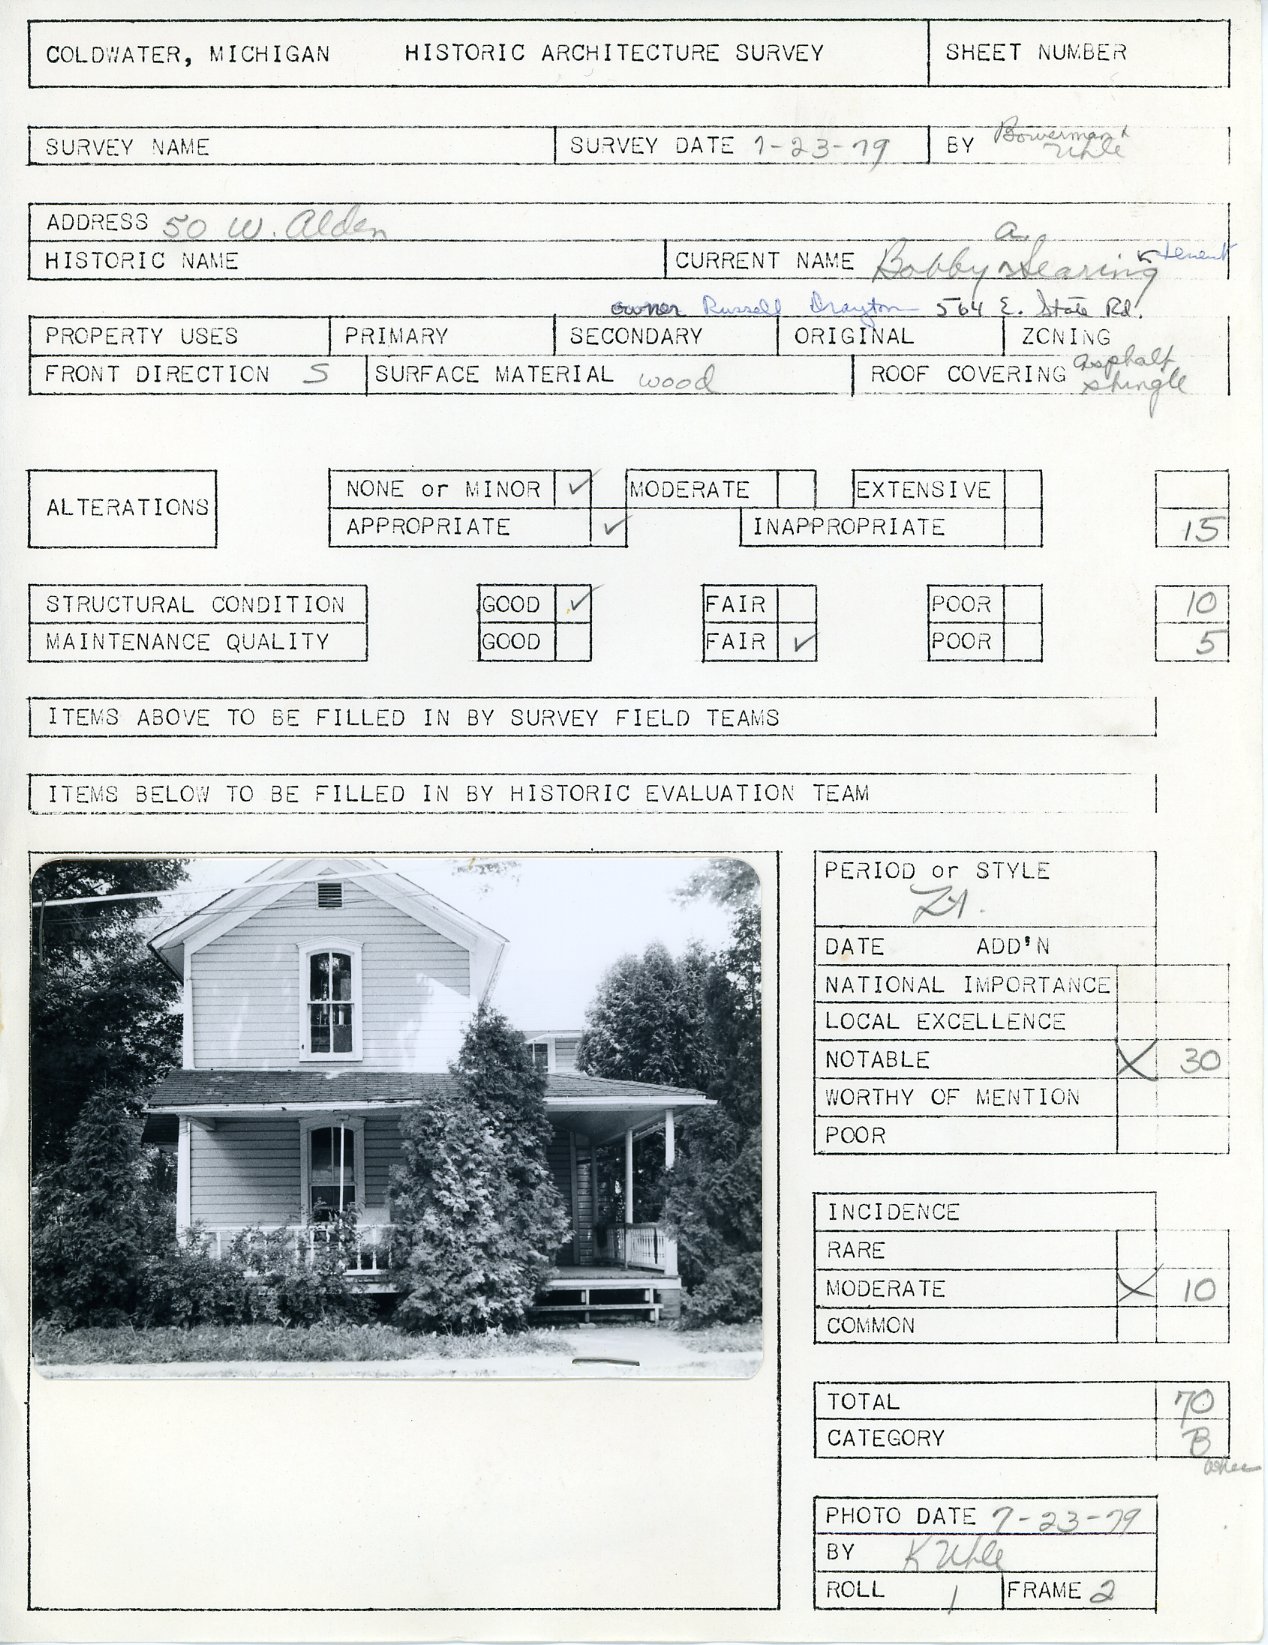 COLDWATER, MICHIGAN HISTORIC ARCHITECTURE SURVEY SHEET NUMBER
SURVEY NAME SURVEY DATE 7-23-79 BY Bowerman & Uhle
ADDRESS 50 W. Alden
HISTORIC NAME CURRENT NAME Bobby A. Searing tenent
owner Russell Drayton 564 E. State Rd.
PROPERTY USES PRIMARY SECONDARY ORIGINAL ZONING
FRONT DIRECTION S SURFACE MATERIAL wood ROOF COVERING asphalt shingle
ALTERATIONS NONE or MINOR ✓ MODERATE EXTENSIVE
APPROPRIATE ✓ INAPPROPRIATE 15
STRUCTURAL CONDITION GOOD ✓ FAIR POOR 10
MAINTENANCE QUALITY GOOD FAIR ✓ POOR 5
ITEMS ABOVE TO BE FILLED IN BY SURVEY FIELD TEAMS
ITEMS BELOW TO BE FILLED IN BY HISTORIC EVALUATION TEAM
PERIOD or STYLE
DATE ADD'N
NATIONAL IMPORTANCE
LOCAL EXCELLENCE
NOTABLE X 30
WORTHY OF MENTION
POOR
INCIDENCE
RARE
MODERATE X 10
COMMON
TOTAL 70
CATEGORY B
PHOTO DATE 7-23-79
BY K Uhle
ROLL 1 FRAME 2